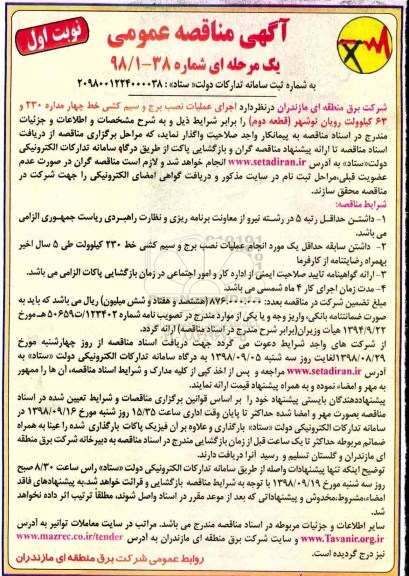 نوبت اول
آگهی مناقصه عمومی
یک مرحله ای شماره ۳۸-۹۸/۱
به شماره ثبت سامانه تدارکات دولت« ستاد» : ۲۰۹۸۰۰۱۲۲۴۰۰۰۰۳۸
شرکت برق منطقه ای مازندران درنظردارد اجرای عملیات نصب برج و سیم کشی خط چهار مداره ۲۳۰ و
۶۳ کیلوولت رویان نوشهر (قطعه دوم) را برابر شرایط ذیل و به شرح مشخصات و اطلاعات و جزئیات
مندرج در اسناد مناقصه به پیمانکار واجد صلاحیت واگذار نماید، که مراحل برگزاری مناقصه از دریافت
اسناد مناقصه تا ارائه پیشنهاد مناقصه گران و بازگشایی پاکت از طریق درگاه سامانه تدارکات الکترونیکی
دولت«ستاد» به آدرس www.setadiran.ir انجام خواهد شد و لازم است مناقصه گران در صورت عدم
عضویت قبلی،مراحل ثبت نام در سایت مذکور و دریافت گواهی امضای الکترونیکی را جهت شرکت در
مناقصه محقق سازند.
شرایط مناقصه:
۱- داشتن حداقل رتبه ۵ در رشته نیرو از معاونت برنامه ریزی و نظارت راهبردی ریاست جمهوری الزامی
می باشد.
۲- داشتن سابقه حداقل یک مورد انجام عملیات نصب برج و سیم کشی خط ۲۳۰ کیلوولت طی ۵ سال اخیر
بهمراه رضایتنامه از کارفرما
۳- ارائه گواهینامه تایید صلاحیت ایمنی از اداره کار و امور اجتماعی در زمان بازگشایی پاکات الزامی می باشد.
۴- مدت زمان اجرای کار ۴ ماه شمسی می باشد.
مبلغ تضمین شرکت در مناقصه بعدد: ۸۷۶.۰۰۰.۰۰۰ (هشتصد و هفتاد و شش میلیون) ریال می باشد که باید به
صورت ضمانتنامه بانکی، واریز وجه و یا یکی از موارد مندرج در تصویب نامه شماره ۱۲۳۴۰۲/ت۵۰۶۵۹ هـ مورخ
۱۳۹۴/۹/۲۲ هیأت وزیران(برابر شرح مندرج در اسناد مناقصه) ارائه گردد.
از شرکت های واجد شرایط دعوت می گردد جهت دریافت اسناد مناقصه از روز چهارشنبه مورخ
۱۳۹۸/۰۸/۲۹ لغایت روز سه شنبه ۱۳۹۸/۰۹/۰۵ به درگاه سامانه تدارکات الکترونیکی دولت «ستاد» به
آدرس www.setadiran.ir مراجعه و پس از اخذ کپی از کلیه مدارک و شرایط اسناد مناقصه، آن ها را ممهور
به مهر و امضاء نموده و به همراه پیشنهاد قیمت ارائه نمایند.
پیشنهاددهندگان بایستی پیشنهاد خود را بر اساس قوانین برگزاری مناقصات و شرایط تعیین شده در اسناد
مناقصه بصورت مهر و امضا شده حداکثر تا پایان وقت اداری ساعت ۱۵/۳۵ روز شنبه مورخ ۱۳۹۸/۰۹/۱۶ در
سامانه تدارکات الکترونیکی دولت «ستاد» بارگذاری و علاوه بر آن فیزیک پاکات بارگذاری شده را عینا به همراه
ضمائم مربوطه حداکثر تا یک ساعت قبل از زمان بازگشایی مندرج در اسناد مناقصه به دبیرخانه شرکت برق منطقه
ای مازندران و گلستان تسلیم و رسید آنرا دریافت دارند.
توضیح اینکه تنها پیشنهادات واصله از طریق سامانه تدارکات الکترونیکی دولت «ستاد» راس ساعت ۸/۳۰ صبح
روز سه شنبه مورخ ۱۳۹۸/۰۹/۱۹ با توجه به شرایط مناقصه بازگشایی و قرائت خواهد شد.به پیشنهادهای فاقد
امضاء،مشروط،مخدوش و پیشنهاداتی که بعد از موعد مقرر در اسناد واصل شوند، مطلقاً ترتیب اثر داده نخواهد
شد.
سایر اطلاعات و جزئیات مربوطه در اسناد مناقصه مندرج می باشد. مراتب در سایت معاملات توانیر به آدرس
www.Tavanir.org.ir و سایت شرکت برق منطقه ای مازندران به آدرس www.mazrec.co.ir/tender
نیز درج گردیده است.
روابط عمومی شرکت برق منطقه ای مازندران